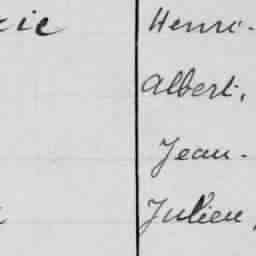 Henri-
Albert,
Jean-
Julien,